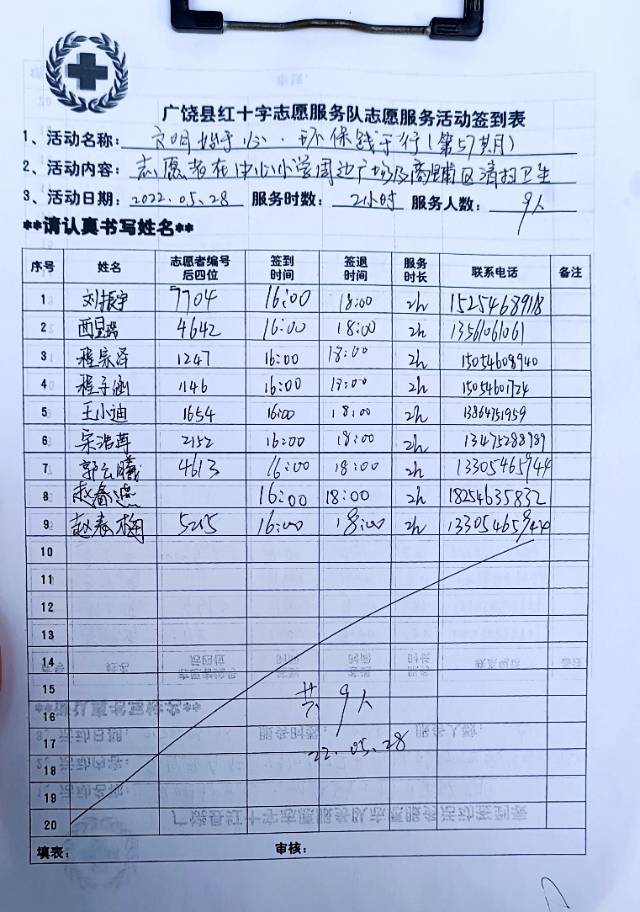 广饶县红十字志愿服务队志愿服务活动签到表
1、活动名称： 文明 环保 行(第57期)
2、活动内容： 志愿者在中心小学周边广场及商铺区清扫卫生
3、活动日期：2022.05.28 服务时数： 2小时 服务人数： 9人
**请认真书写姓名**
序号 姓名 志愿者编号后四位 签到时间 签退时间 服务时长 联系电话 备注
1 刘振宇 7704 16:00 18:00 2h
2 4642 16:00 18:00 2h 13561061061
3 程宗泽 1247 16:00 18:00 2h 15054608940
4 程子涵 1146 16:00 2h 15054601724
5 王小迪 1654 16:00 18:00 2h 13864751959
6 宋浩苒 2152 16:00 18:00 2h
7 郭云曦 4613 16:00 18:00 2h 13305465944
8 16:00 18:00 2h 18254635832
9 赵春梅 5215 16:00 18:00 2h
10
11
12
13
14
15
16
17
18
19
20
共9人
22.05.28
填表： 审核：